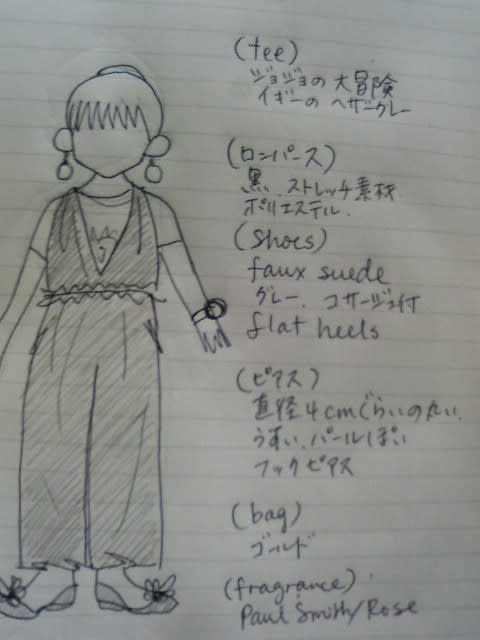 (tee)
ジョジョの大冒険
イギーの ヘザーグレー
(ロンパース)
黒. ストレッチ素材
ポリエステル.
(shoes)
faux suede
グレー. コサージュ付
flat heels
(ピアス)
直径4cmぐらいの丸い.
うすい. パールぽい
フックピアス
(bag)
ゴールド
(fragrance)
Paul Smith/Rose